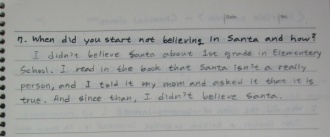 7. When did you start not believing in Santa and how?
I didn't believe Santa about 1st grade in Elementery
School. I read in the book that Santa isn't a really
person, and I told it my mom and asked it that it is
true. And since than, I didn't believe Santa.